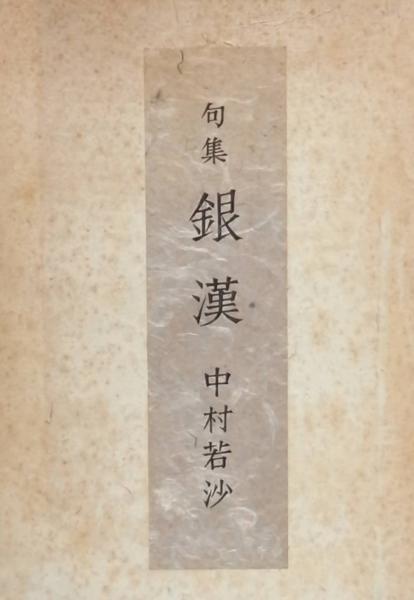 句集 銀漢 中村若沙